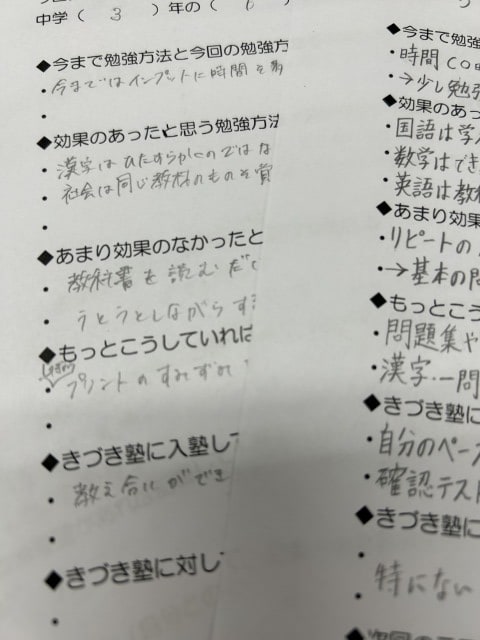 中学（ 3 ）年の（
◆今まで勉強方法と今回の勉強方
・今まではインプットに時間を
・
◆効果のあったと思う勉強方法
・漢字はひたすらかくのではな
・社会は同じ教材のものを買
・
◆あまり効果のなかったと
・教科書を読むだ
・うとうとしながら
◆もっとこうしていれば
・プリントのすみずみ
・
◆きづき塾に入塾し
・教え合いができ
・
◆きづき塾に対し
・
◆今まで勉強
・時間
・→少し勉強
◆効果のあっ
・国語は学
・数学はでき
・英語は教
◆あまり効果
・リピートの
・→基本の問
◆もっとこう
・問題集や
・漢字・一問
◆きづき塾に
・自分のペー
・確認テスト
◆きづき塾に
・
・特にない